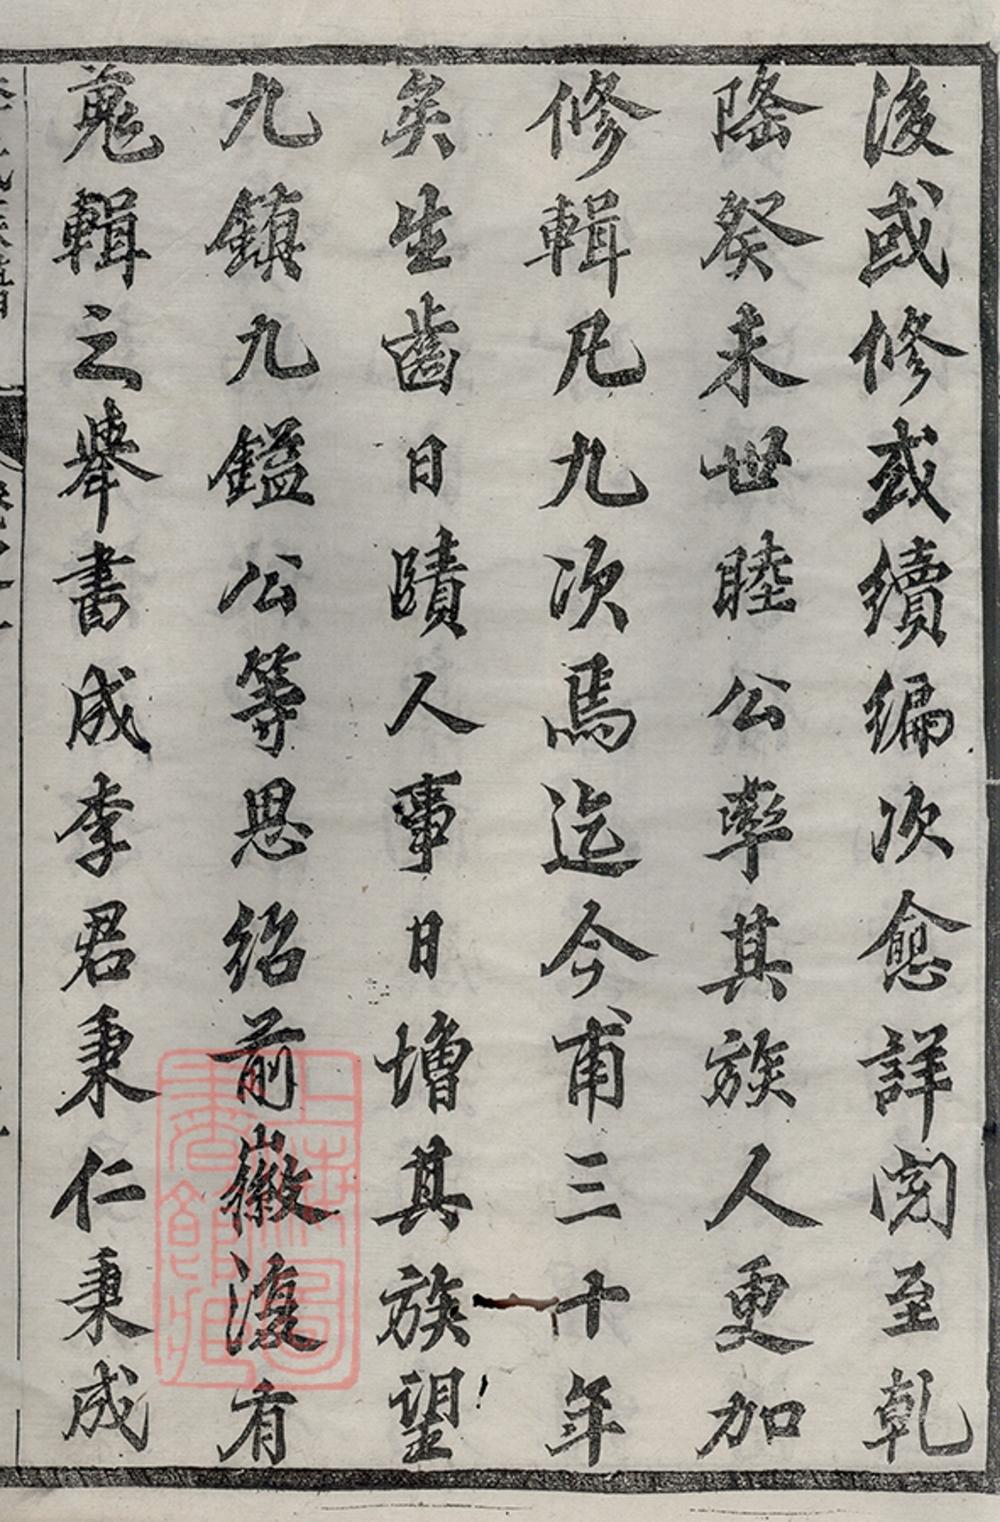 後或修或續編次愈詳閱至乾
隆癸未世睦公率其族人更加
修輯凡九次焉迄今甫三十年
矣生齒日賾人事日增其族望
九鎮九鎰公等思紹前徽復有
蒐輯之舉書成李君秉仁秉成
上海圖書館藏